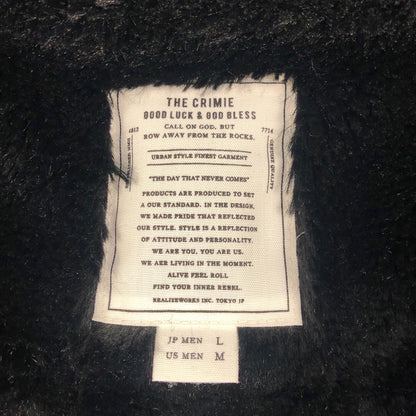 THE CRIMIE
GOOD LUCK & GOD BLESS
CALL ON GOD, BUT
ROW AWAY FROM THE ROCKS.
4812
7714
URBAN STYLE FINEST GARMENT
CENTURY QUALITY
"THE DAY THAT NEVER COMES"
PRODUCTS ARE PRODUCED TO SET
A OUR STANDARD. IN THE DESIGN,
WE MADE PRIDE THAT REFLECTED
OUR STYLE. STYLE IS A REFLECTION
OF ATTITUDE AND PERSONALITY.
WE ARE YOU, YOU ARE US.
WE AER LIVING IN THE MOMENT.
ALIVE FEEL ROLL
FIND YOUR INNER REBEL.
REALIZEWORKS INC. TOKYO JP
JP MEN L
US MEN M